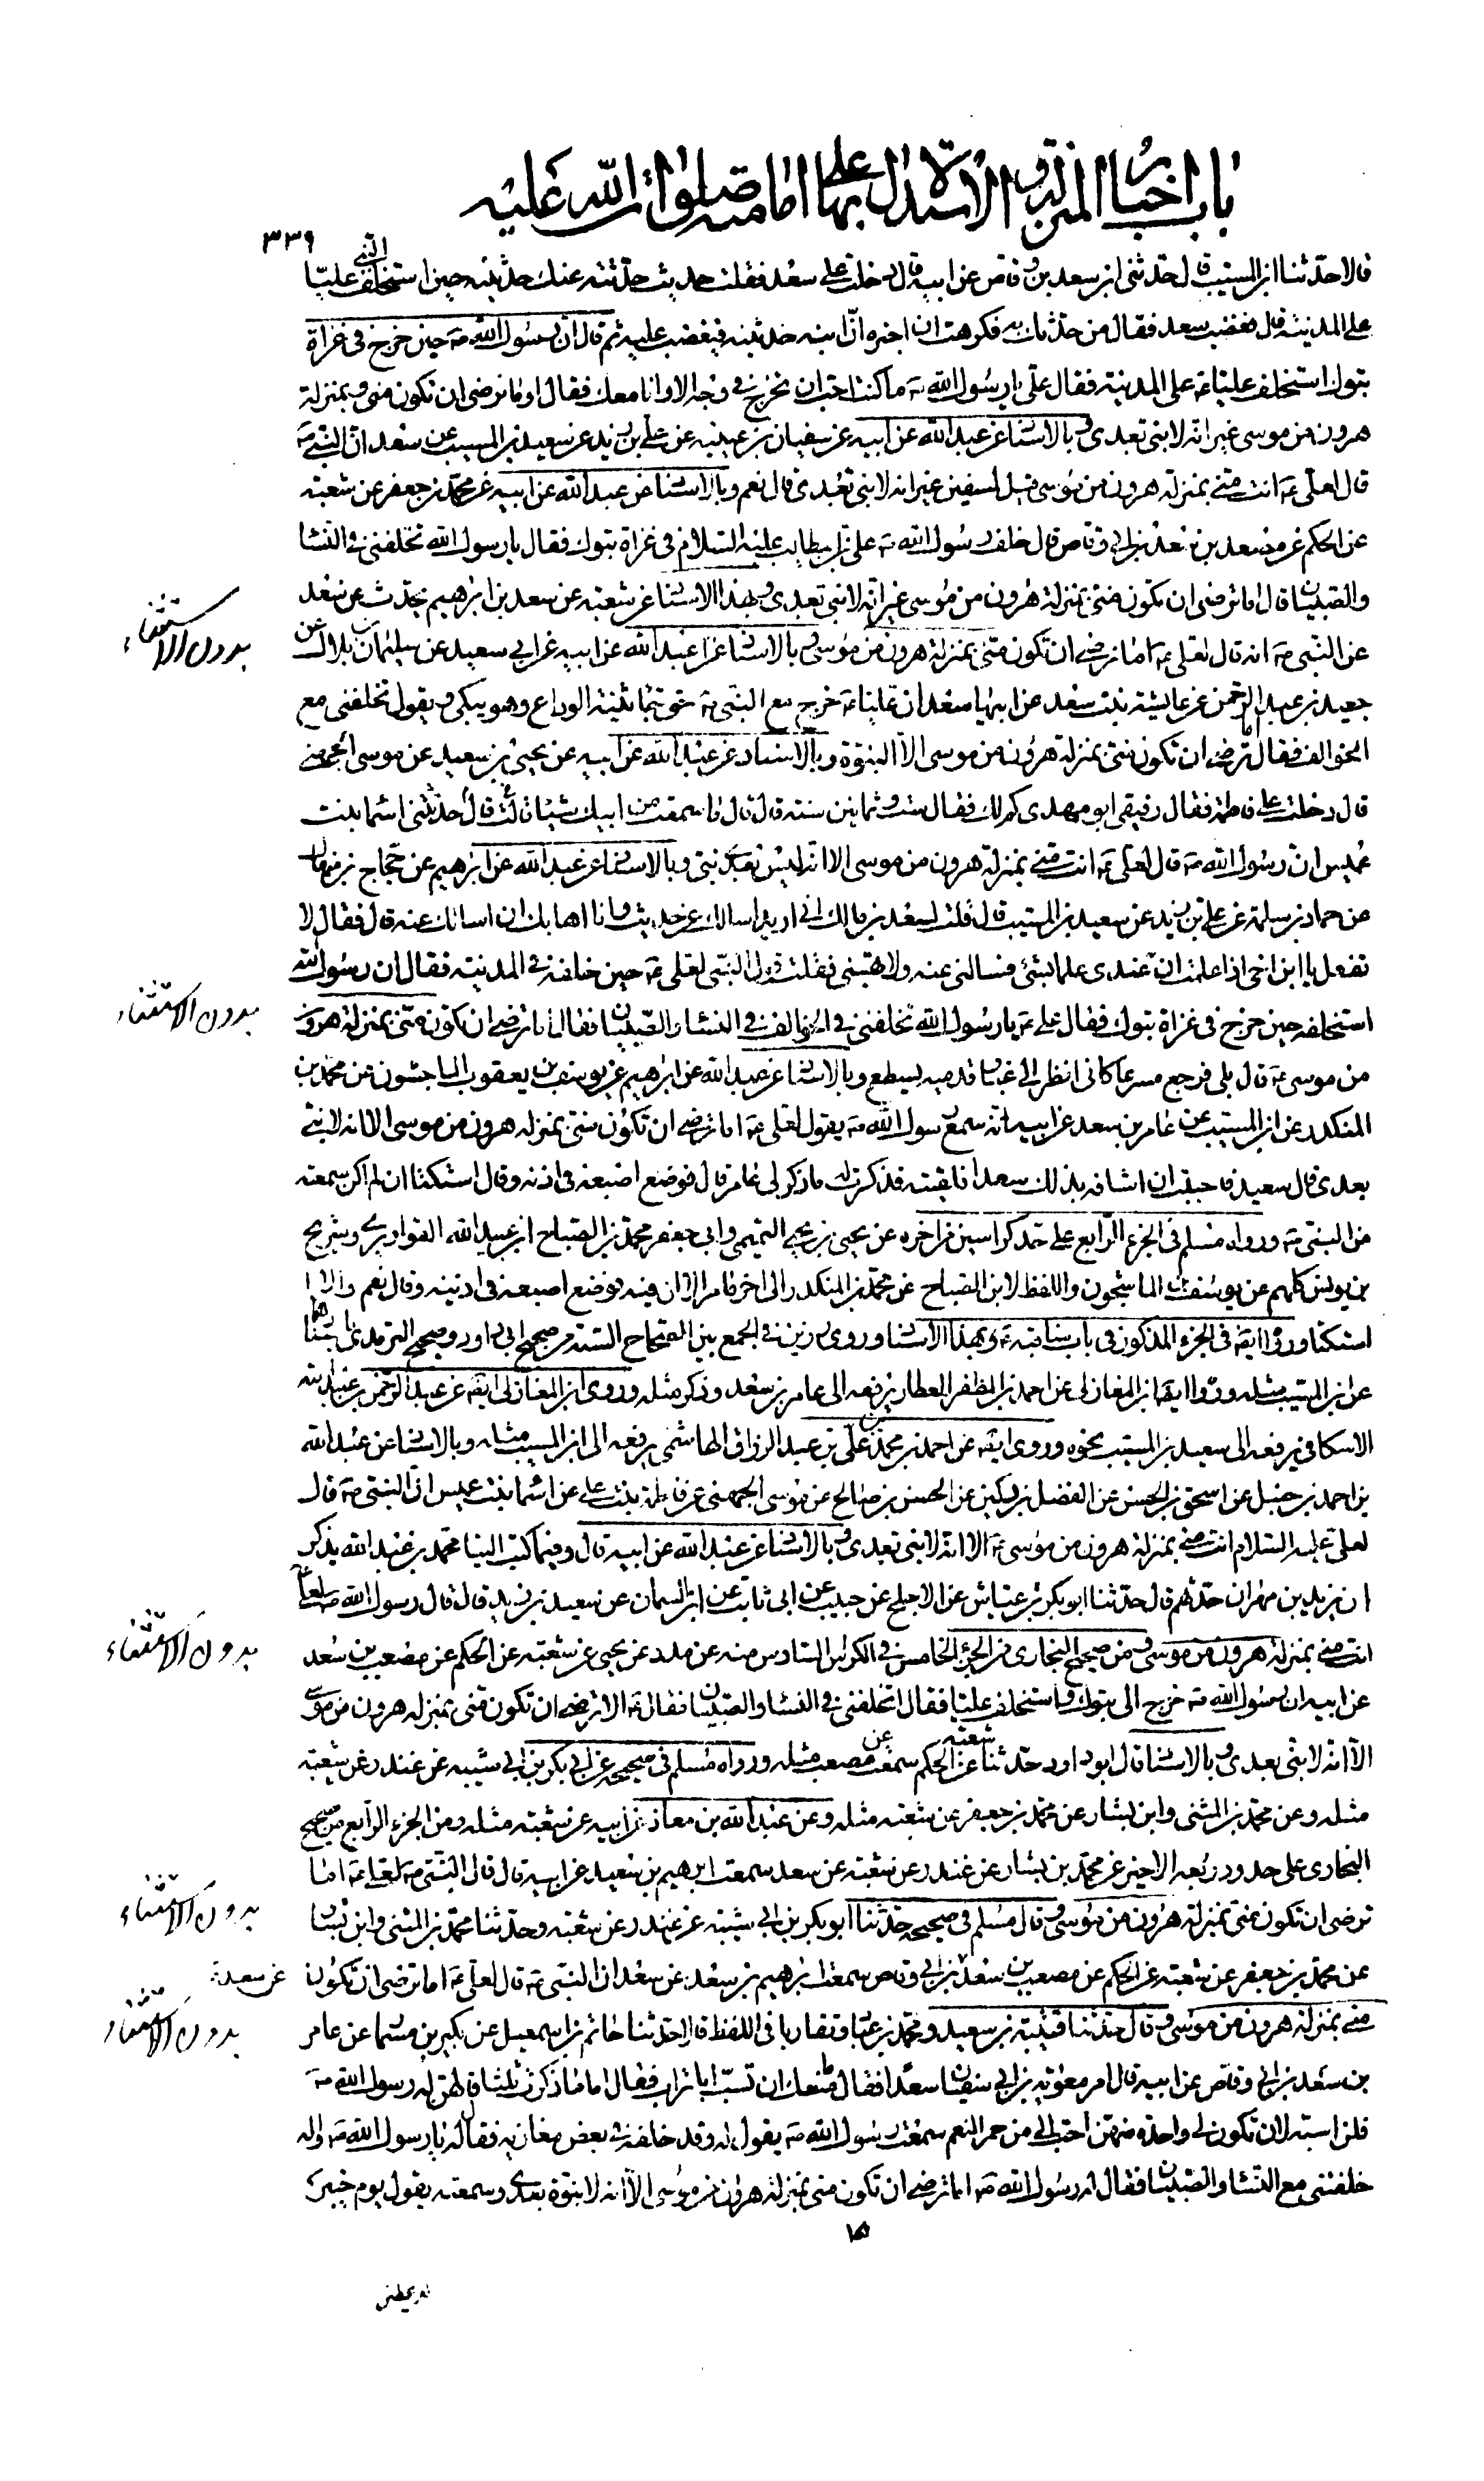 باب اخبار المنزلة و الاستدلال بها على امامته صلوات الله عليه
٣٣٩
قالا حدثنا ابن المسيب قال حدثنى ابن سعد بن وقاص عن ابيه قال دخلت على سعد فقلت حديث حدثته عنك حدثنيه حين استخلف النبى عليا
على المدينة قال فغضب سعد فقال من حدثك به فكرهت ان اخبره ان ابنه حدثنيه فيغضب عليه ثم قال ان رسول الله ص حين خرج فى غزاة
تبوك استخلف عليا ع على المدينة فقال على يا رسول الله ص ما كنت احب ان تخرج فى وجه الا و انا معك فقال او ما ترضى ان تكون منى بمنزلة
هرون من موسى غير انه لا نبى بعدى و بالاسنا عن عبد الله عن ابيه عن سفيان بن عيينه عن على بن زيد عن سعيد بن المسيب عن سعد ان النبى ص
قال لعلى ع انت منى بمنزلة هرون من موسى قيل لسفين غير انه لا نبى بعدى قال نعم و بالاسنا عن عبد الله عن ابيه عن محمد بن جعفر عن شعبه
عن الحكم عن مصعد بن سعد بن ابى وقاص قال خلف رسول الله ص على بن ابيطالب عليه السلام فى غزاة تبوك فقال يا رسول الله تخلفنى فى النسا
و الصبيان قال اما ترضى ان تكون منى بمنزلة هرون من موسى غير انه لا نبى بعدى و بهذا الاسنا عن شعبه عن سعد بن ابرهيم يحدث عن سعد
بدون الاستثناء
عن النبى ص انه قال لعلى ع اما ترضى ان تكون منى بمنزلة هرون من موسى و بالاسنا عن عبد الله عن ابيه عن ابى سعيد عن سليمان بن بلال عن
جعيد بن عبد الرحمن عن عايشة بنت سعد عن ابيها سعد ان عليا ع خرج مع النبى ص حتى ثنية الوداع و هو يبكى و يقول تخلفنى مع
الخوالف فقال اما ترضى ان تكون منى بمنزلة هرون من موسى الا النبوة و بالاسناد عن عبد الله عن ابيه عن يحيى بن سعيد عن موسى الجهنى
قال دخلت على فاطمة فقال رفيقى ابو مهدى كم لك فقال ست و ثمانين سنة قال قال ما سمعت من ابيك شيئا قالت قال حدثتنى اسما بنت
عميس ان رسول الله ص قال لعلى ع انت منى بمنزلة هرون من موسى الا انه ليس بعدى نبى و بالاسنا عن عبد الله عن ابرهيم عن حجاج بن منهال
عن حماد بن سلمة عن على بن زيد عن سعيد بن المسيب قال قلت لسعد بن مالك انى اريد اسالك عن حديث و انا اهابك ان اسالك عنه قال فقال لا
تفعل يا ابن اخى اذا علمت ان عندى علما بشئ فسالنى عنه و لا تهبنى فقلت قول النبى لعلى ع حين خلفه فى المدينه فقال ان رسول الله
استخلفه حين خرج فى غزاة تبوك فقال على ع يا رسول الله تخلفنى فى الخوالف فى النسا و الصبيان فقال اما ترضى ان تكون منى بمنزلة هرون
بدون الاستثناء
من موسى ع قال بلى فرجع مسرعا كانى انظر الى غبار قدميه يسطع و بالاسنا عن عبد الله عن ابرهيم عن يوسف بن يعقوب الماجشون عن محمد بن
المنكدر عن ابن المسيب عن عامر بن سعد عن ابيه انه سمع رسول الله ص يقول لعلى ع اما ترضى ان تكون منى بمنزلة هرون من موسى الا انه لا نبى
بعدى قال سعيد فاحببت ان اشافه بذلك سعدا فلقيته فذكرت له ما ذكر لى عامر قال فوضع اصبعه فى اذنه و قال استكتا ان لم اكن سمعته
من النبى ص و رواه مسلم فى الجزء الرابع على حد كراسين من اخره عن يحيى بن يحيى التميمى و ابى جعفر محمد بن الصباح ابن عبيد الله القواريرى و شريح
بن يونس كلهم عن يوسف الماجشون و اللفظ لابن الصباح عن محمد بن المنكدر الى اخر ما مر الا ان فيه فوضع اصبعه فى اذنيه و قال نعم و الا
استكتا و روى ايضا فى الجزء المذكور فى باب مناقبه ع بهذا الاسنا و روى رزين فى الجمع بين الصحاح الستة من صحيح ابى داود و صحيح الترمذى
عن ابن المسيب مثله و روى ايضا ابن المغازلى عن احمد بن المظفر العطار يرفعه الى عامر بن سعد و ذكر مثله و روى ابن المغازلى ايضا عن عبد الرحمن بن عبد الله
الاسكافى يرفعه الى سعيد بن المسيب نحوه و روى ايضا عن احمد بن محمد بن على بن عبد الرزاق الهاشمى يرفعه الى ابن المسيب مثله و بالاسنا عن عبد الله
بن احمد بن حنبل عن اسحق بن الحسن عن الفضل بن دكين عن الحسن بن صالح عن موسى الجهنى عن فاطمة بنت على عن اسما بنت عميس ان النبى ص قال
لعلى عليه السلام انت منى بمنزلة هرون من موسى ع الا انه لا نبى بعدى و بالاسنا عن عبد الله عن ابيه قال و فيما كتب الينا محمد بن عبد الله يذكر
ان يزيد بن مهران حدثهم قال حدثنا ابو بكر بن عياش عن الاجلح عن حبيب عن ابى ثابت عن ابن السمان عن سعيد بن زيد قال قال رسول الله ص لعلى ع
انت منى بمنزلة هرون من موسى و من صحيح البخارى من الجزء الخامس فى الكراس السادس منه عن مسدد عن يحيى عن شعبة عن الحكم عن مصعب بن سعد
بدون الاستثناء
عن ابيه ان رسول الله ص خرج الى تبوك و استخلف عليا فقال اتخلفنى فى النسا و الصبيان فقال ع الا ترضى ان تكون منى بمنزلة هرون من موسى
الا انه لا نبى بعدى و بالاسنا قال ابو داود حدثنا شعبه عن الحكم سمعت عن مصعب مثله و رواه مسلم فى صحيحه عن ابى بكر بن ابى شيبه عن غندر عن شعبه
مثله و عن محمد بن المثنى و ابن بشار عن محمد بن جعفر عن شعبه مثله و عن عبد الله بن معاذ عن ابيه عن شعبه مثله و من الجزء الرابع من صحيح
البخارى على حد ربعه الاخير عن محمد بن بشار عن غندر عن شعبه عن سعد سمعت ابرهيم بن سعيد عن ابيه قال قال النبى ص لعلى ع اما
ترضى ان تكون منى بمنزلة هرون من موسى و قال مسلم فى صحيحه حدثنا ابو بكر بن ابى شيبه عن غندر عن شعبه و حدثنا محمد بن المثنى و ابن بشار
بدون الاستثناء
عن محمد بن جعفر عن شعبه عن الحكم عن مصعب بن سعد بن ابى وقاص سمعت ابرهيم بن سعد عن سعد ان النبى ص قال لعلى ع اما ترضى ان تكون
عن سعد
منى بمنزلة هرون من موسى و قال حدثنا قتيبة بن سعيد و محمد بن عباد تقاربا فى اللفظ قالا حدثنا حاتم بن اسمعيل عن بكير بن مسمار عن عامر
بدون الاستثناء
بن سعد بن ابى وقاص عن ابيه قال امر معوية بن ابى سفيان سعدا فقال ما منعك ان تسب ابا تراب فقال اما ما ذكرت ثلثا قالهن له رسول الله ص
فلن اسبه لان تكون لى واحدة منهن احب الى من حمر النعم سمعت رسول الله ص يقول له و قد خلفه فى بعض مغازيه فقال له يا رسول الله ص و اله
خلفتنى مع النسا و الصبيان فقال له رسول الله ص اما ترضى ان تكون منى بمنزلة هرون من موسى الا انه لا نبوة بعدى و سمعته يقول يوم خيبر